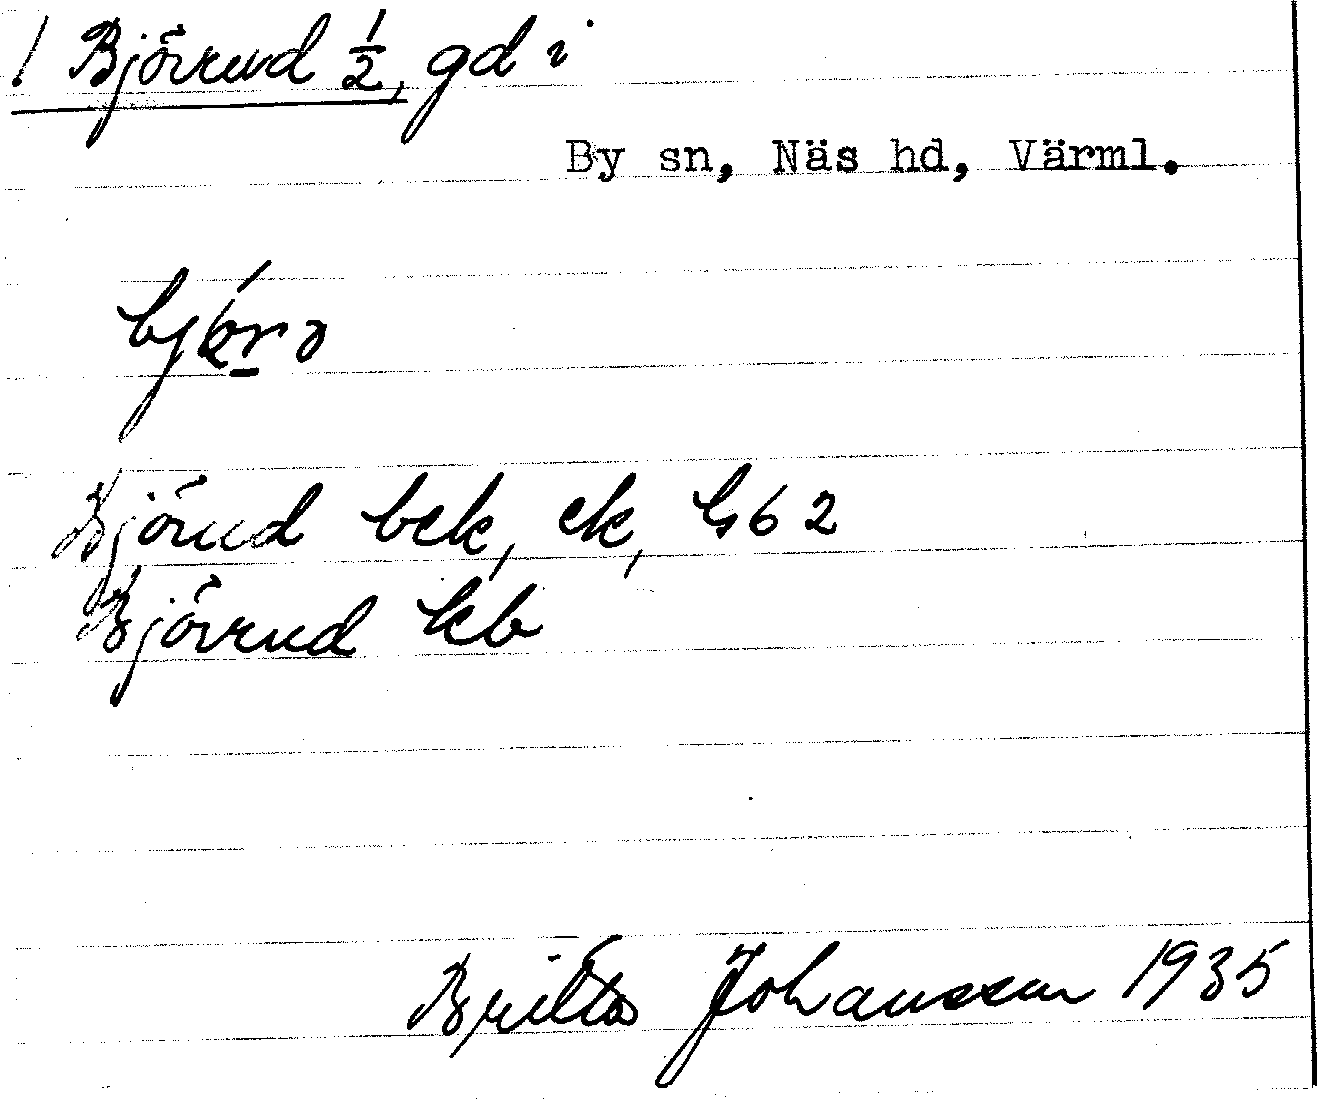 ! Björrud 1/2, gd i
By sn, Näs hd, Värml.
Björud bek, ek, G62
Björrud kb
Britta Johansson 1935